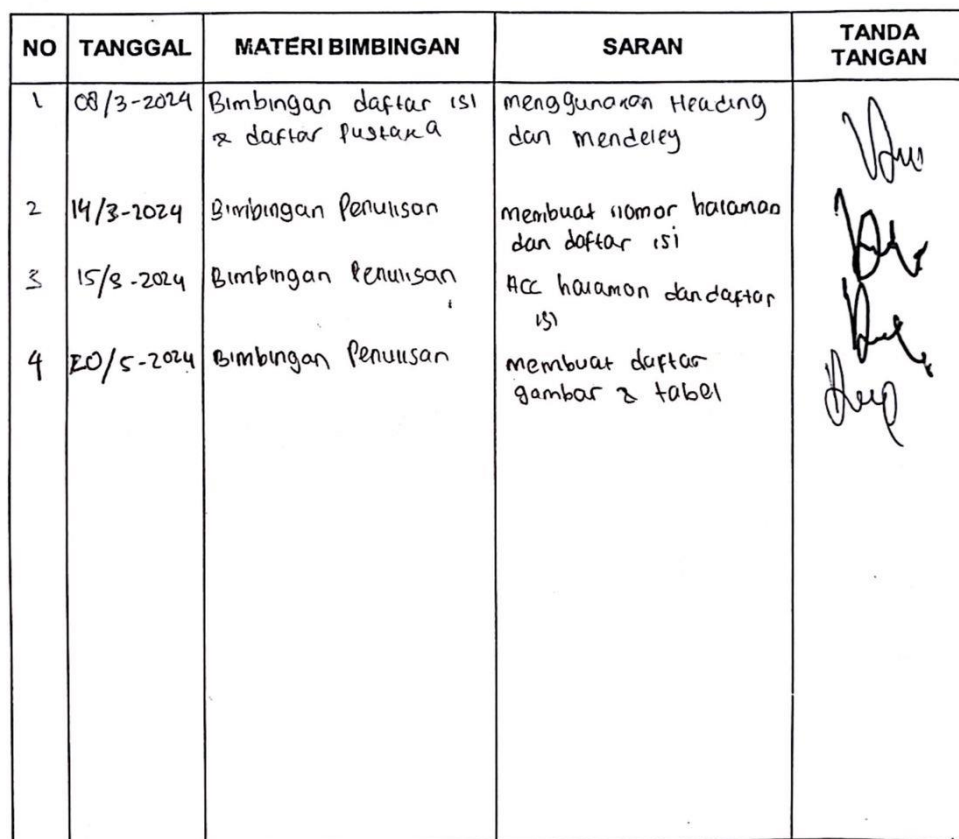 NO TANGGAL MATERI BIMBINGAN SARAN TANDA TANGAN
1 08/3-2024 Bimbingan daftar isi menggunakan Heading
& daftar Pustaka dan Mendeley
2 14/3-2024 Bimbingan Penulisan membuat nomor halaman
dan daftar isi
3 15/3-2024 Bimbingan Penulisan ACC halaman dan daftar
isi
4 20/5-2024 Bimbingan Penulisan membuat daftar
gambar & tabel